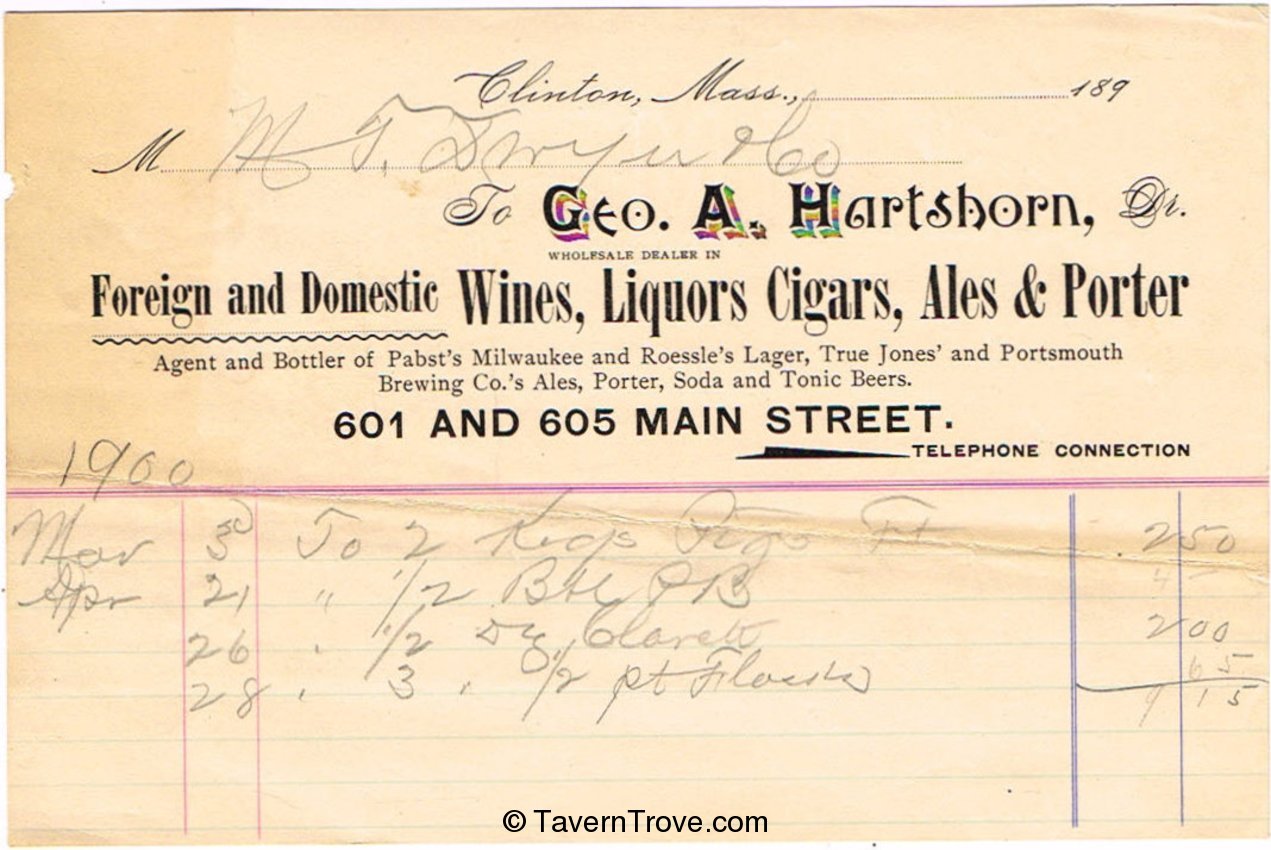 Clinton, Mass., 189
M M T. Dwyer & Co
To Geo. A. Hartshorn, Dr.
WHOLESALE DEALER IN
Foreign and Domestic Wines, Liquors Cigars, Ales & Porter
Agent and Bottler of Pabst's Milwaukee and Roessle's Lager, True Jones' and Portsmouth
Brewing Co.'s Ales, Porter, Soda and Tonic Beers.
601 AND 605 MAIN STREET.
TELEPHONE CONNECTION
1900
Mar 3 To 2 Kegs Pigs Ft 2 50
Apr 21 " 1/2 Bbl 4 -
26 " 1/2 Dz Claret 2 00
28 " 3 " 1/2 pt Flasks 65
9 15
© TavernTrove.com